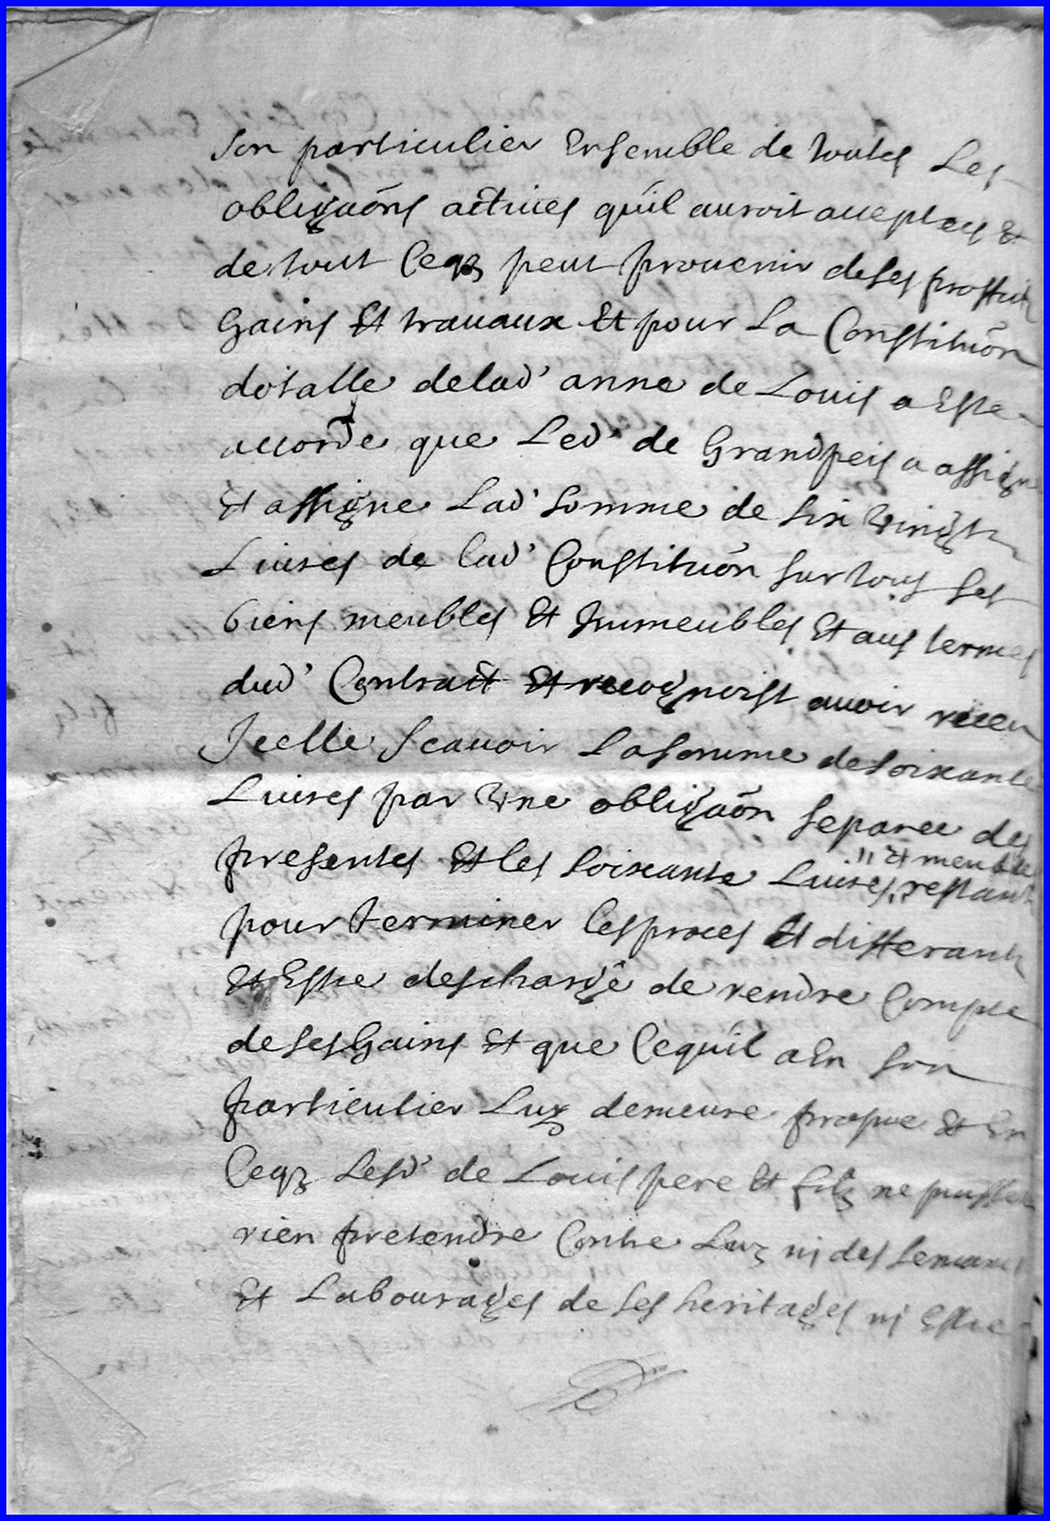 son particulier Ensemble de toutes Les
obligaõns actiues quil auroit acceptees Et
de tout Ceqz peut prouenir deses proffits
Gains Et trauaux Et pour La Constituõn
dotalle delad' anne de Louis a Este
accordé que Led' de Grandpeis a assigné
Et assigne Lad' somme de six vingts
Liures de lad' Constituõn sur tous ses
biens meubles Et Immeubles Et aus termes
dud' Contract Et recognoist auoir receu
Icelle scauoir La somme desoixante
Liures par vne obligaõn separee des
Et meubles
presentes Et les soixante Liures restant
pour terminer les proces Et differants
Et Estre deschargé de rendre Compte
deses Gains Et que Cequil a En son
particulier Luy demeure propre Et En
Ceqz Lesd' de Louis pere Et filz ne puissent
rien pretendre Contre Luy ni des
Et Labourages de ses heritages ni Estre